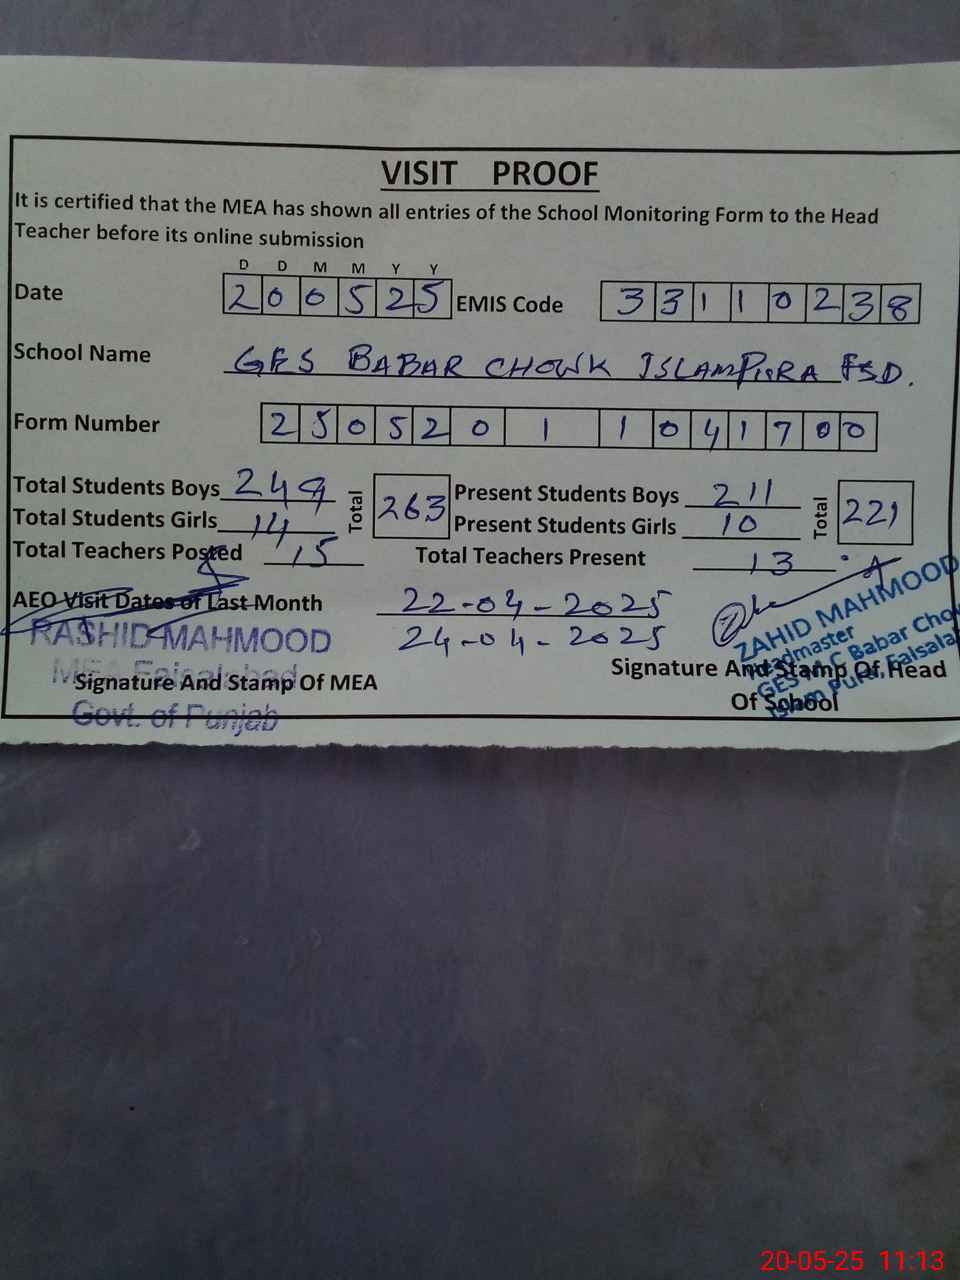 VISIT PROOF
It is certified that the MEA has shown all entries of the School Monitoring Form to the Head
Teacher before its online submission
D D M M Y Y
Date 2 0 0 5 2 5 EMIS Code 3 3 1 1 0 2 3 8
School Name GES BABAR CHOWK ISLAMPURA FSD.
Form Number 2 5 0 5 2 0 1 1 0 4 1 7 0 0
Total Students Boys 249 Total 263 Present Students Boys 211 Total 221
Total Students Girls 14 Present Students Girls 10
Total Teachers Posted 15 Total Teachers Present 13
AEO Visit Dates of Last Month 22-04-2025
24-04-2025
RASHID MAHMOOD
MEA Faisalabad
Govt. of Punjab
Signature And Stamp Of MEA
ZAHID MAHMOOD
Headmaster
GES Babar Cho
Islam Pura, Faisala
Signature And Stamp Of Head
Of School
20-05-25 11:13